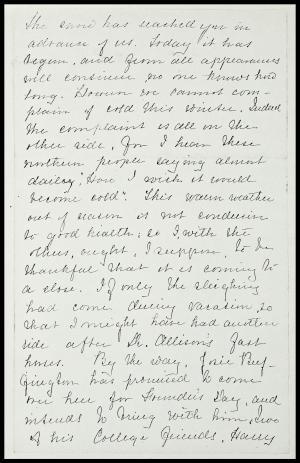 The snow has reached you in
advance of us. Today it has
begun, and from all appearances
will continue no one knows how
long. However we cannot com-
plain of cold this winter. Indeed
the complaint is all on the
other side, for I hear these
northern people saying almost
daily, "How I wish it would
become cold". This warm weather
out of season is not conducive
to good health; so I, with the
others, ought, I suppose, to be
thankful that it is coming to
a close. If only the sleighing
had come during vacation, so
that I might have had another
ride after Dr. Allison's fast
horses. By the way, Josie Buf-
fington has promised to come
on here for Founder's Day, and
intends to bring with him, two
of his College friends, Harry